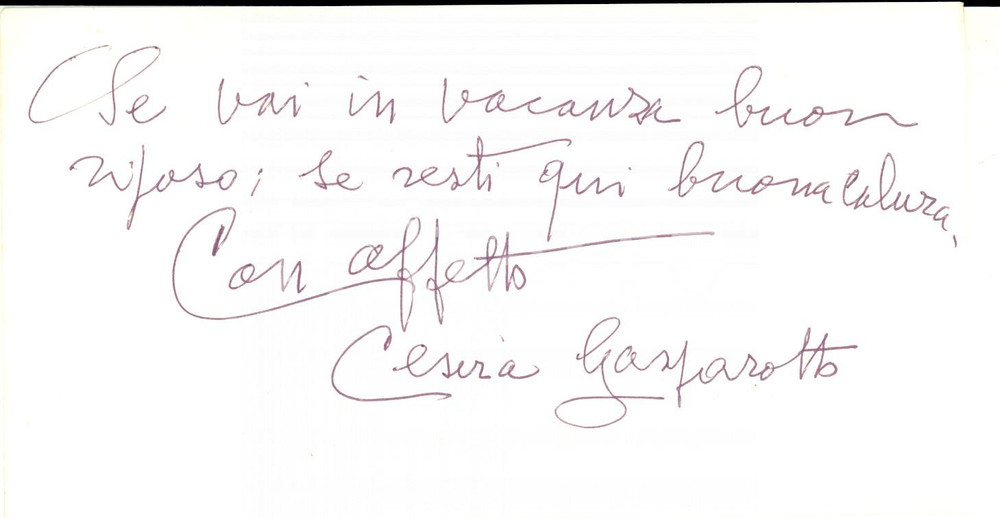 Se vai in vacanza buon
riposo; se resti qui buona calura.
Con affetto
Cesira Gasparotto